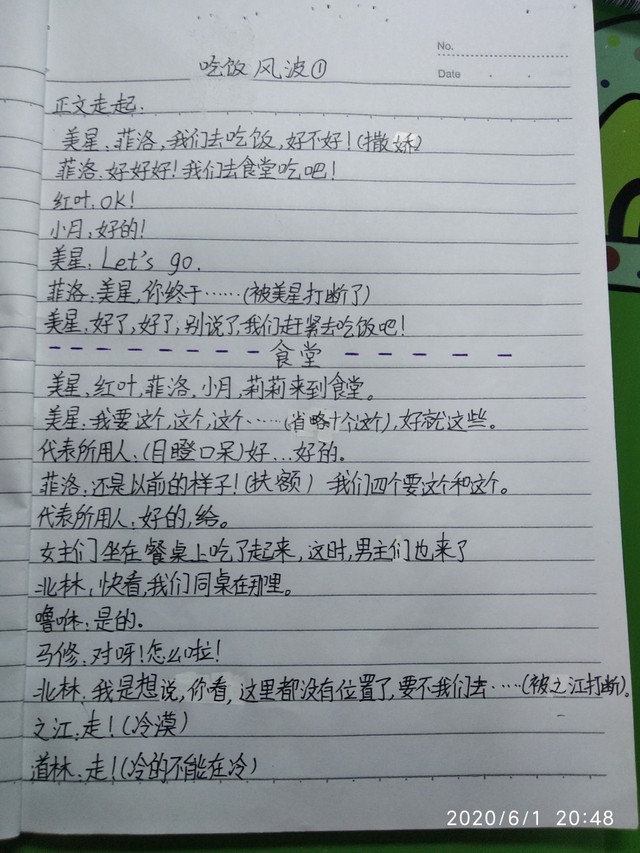 No.
Date
吃饭风波①
正文走起:
美星:菲洛,我们去吃饭,好不好!(撒娇)
菲洛:好好好!我们去食堂吃吧!
红叶:OK!
小月:好的!
美星:Let's go.
菲洛:美星,你终于……(被美星打断了)
美星:好了,好了,别说了,我们赶紧去吃饭吧!
食堂
美星,红叶,菲洛,小月,莉莉来到食堂。
美星:我要这个,这个,这个……(省略n个这个),好就这些。
代表所用人:(目瞪口呆)好...好的。
菲洛:还是以前的样子!(扶额) 我们四个要这个和这个。
代表所用人:好的,给。
女主们坐在餐桌上吃了起来,这时,男主们也来了
北林:快看,我们同桌在那里。
噜咻:是的。
马修:对呀!怎么啦!
北林:我是想说,你看,这里都没有位置了,要不我们去……(被之江打断)。
之江:走!(冷漠)
道林:走!(冷的不能在冷)
2020/6/1 20:48